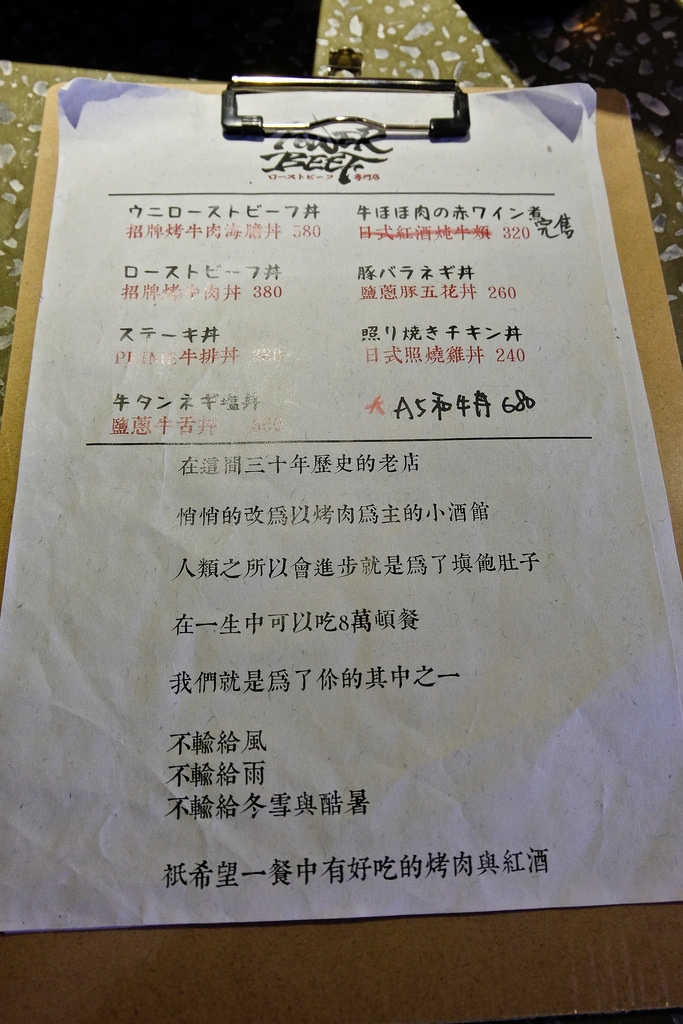 TOWER
BEEF
ローストビーフ 専門店
ウニローストビーフ丼
招牌烤牛肉海膽丼 580
ローストビーフ丼
招牌烤牛肉丼 380
ステーキ丼
PRIME牛排丼
牛タンネギ塩丼
鹽蔥牛舌丼
牛ほほ肉の赤ワイン煮
日式紅酒炖牛頰 320 完售
豚バラネギ丼
鹽蔥豚五花丼 260
照り焼きチキン丼
日式照燒雞丼 240
A5和牛丼 680
在這間三十年歷史的老店
悄悄的改為以烤肉為主的小酒館
人類之所以會進步就是為了填飽肚子
在一生中可以吃8萬頓餐
我們就是為了你的其中之一
不輸給風
不輸給雨
不輸給冬雪與酷暑
祇希望一餐中有好吃的烤肉與紅酒